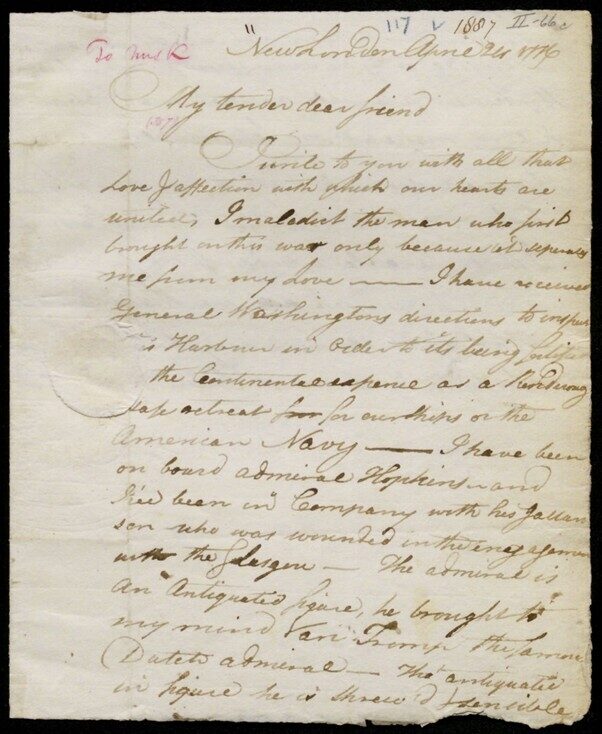 117 ✓ 1887 II-66c
To Mrs K
New London April 24 1776
My tender dear friend
I write to you with all that
Love & affection with which our hearts are
united, I maledict the man who first
brought on this war only because it seperates
me from my Love — I have received
General Washingtons directions to inspect
is Harbour in order to its being fortified
the Continental expence as a Rendezvous
safe retreat for for our Ships or the
American Navy — I have been
on board admiral Hopkins and
I've been in Company with his Gallant
son who was wounded in the engagement
with the Glasgow — The admiral is
an Antiquated figure, he brought to
my mind Van Tromp the famous
Dutch admiral — Tho antiquated
in figure he is shrewd & sensible